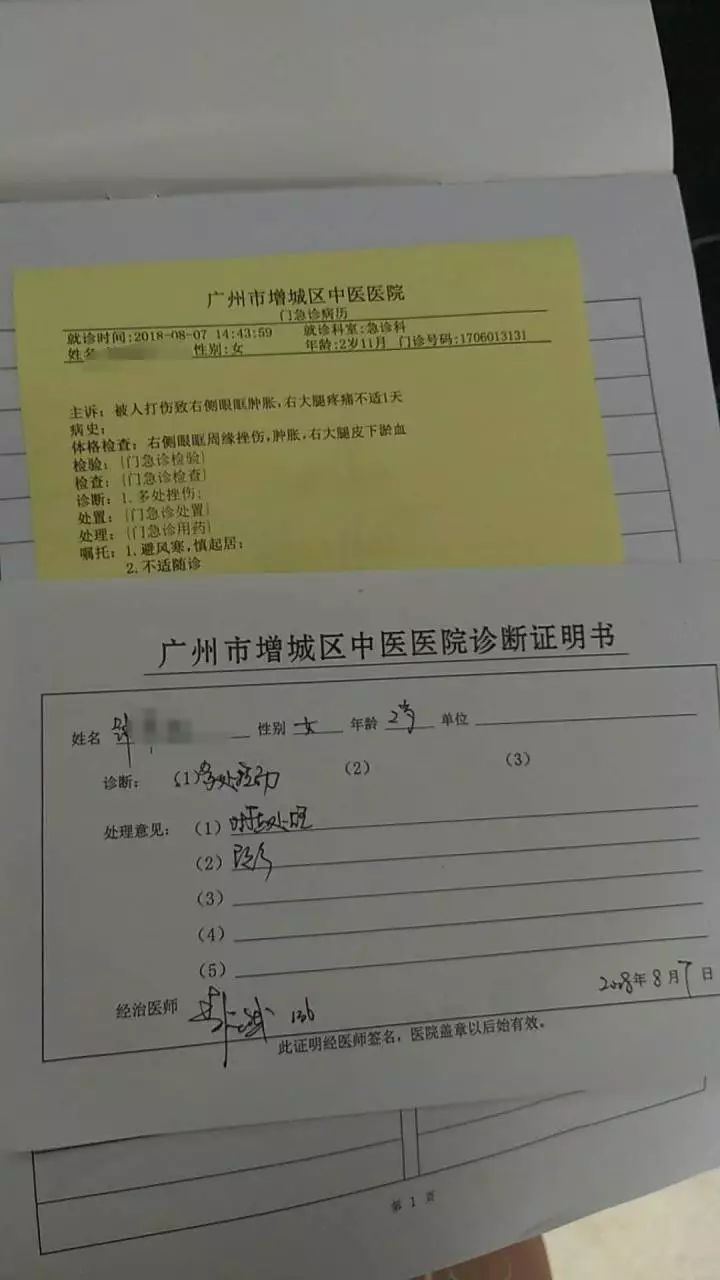 广州市增城区中医医院
门急诊病历
就诊时间:2018-08-07 14:43:59 就诊科室:急诊科
姓名 性别:女 年龄:2岁11月 门诊号码:1706013131
主诉: 被人打伤致右侧眼眶肿胀,右大腿疼痛不适1天
病史:
体格检查: 右侧眼眶周缘挫伤,肿胀,右大腿皮下淤血
检验: {门急诊检验}
检查: {门急诊检查}
诊断: 1.多处挫伤;
处置: {门急诊处置}
处理: {门急诊用药}
嘱托: 1.避风寒,慎起居;
2.不适随诊
广州市增城区中医医院诊断证明书
姓名 性别 女 年龄 2岁 单位
诊断: (1)多处挫伤 (2) (3)
处理意见: (1)对症处理
(2)
(3)
(4)
(5)
经治医师
2018年8月7日
此证明经医师签名,医院盖章以后始有效。
第 1 页